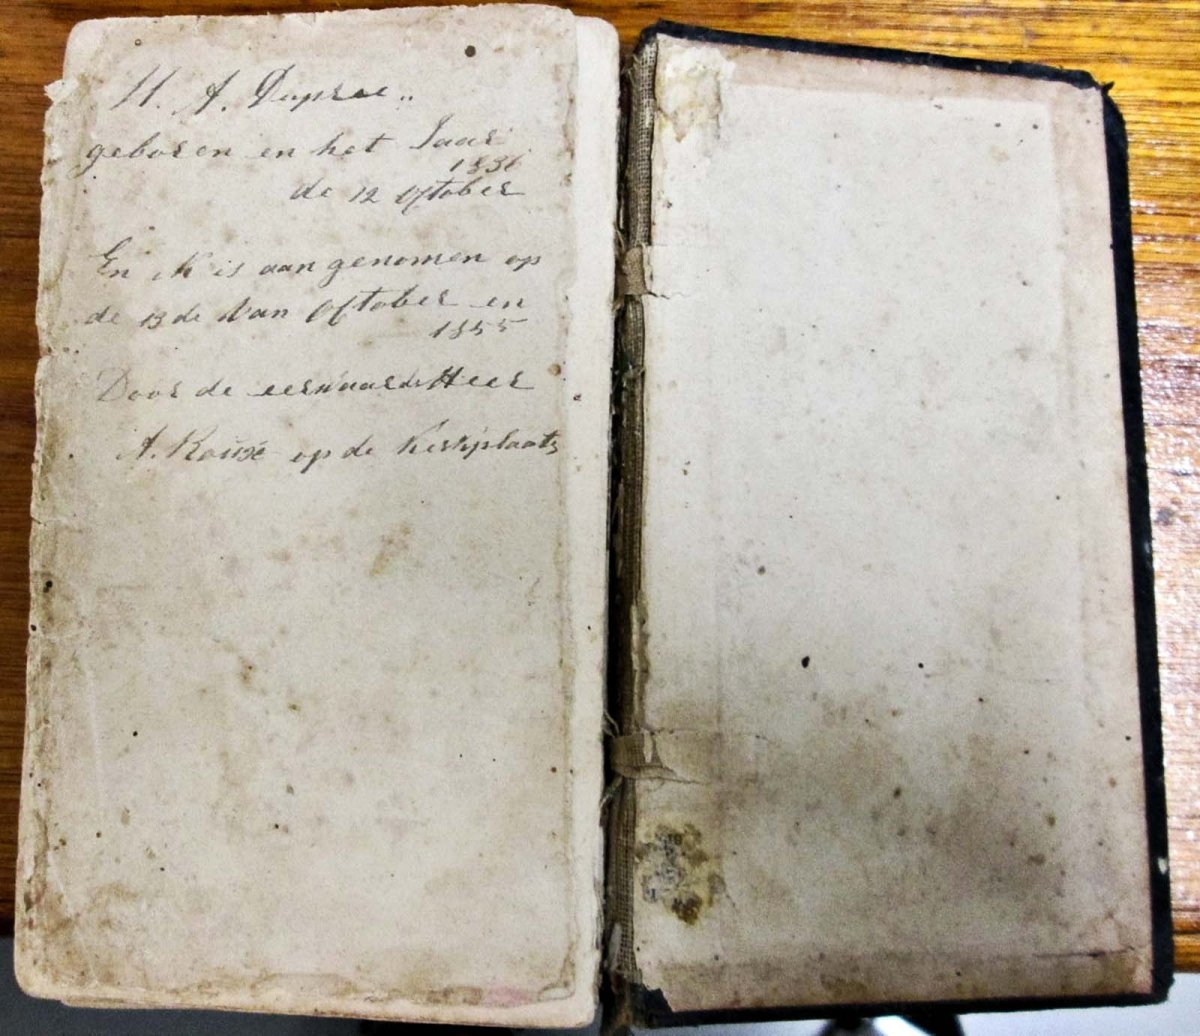 H. A. Dupree
geboren en het Jaar
1836
de 12 October
En ik is aangenomen op
de 13 de Van October en
1855
Door de eerwaarde Heer
A. Roux op de Kerkplaats